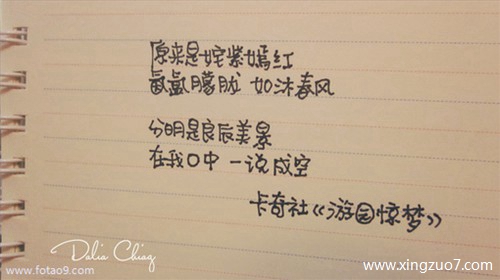 原来是姹紫嫣红
氤氲朦胧 如沐春风
分明是良辰美景
在我口中 一说成空
卡奇社《游园惊梦》
Dalia Chiag
www.fotao9.com
www.xingzuo7.com